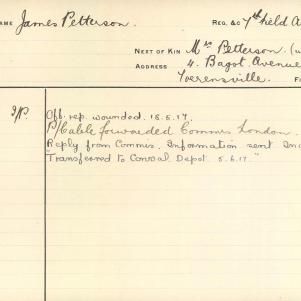 NAME James Petterson. REG. &C 7th Field A
NEXT OF KIN Mrs Petterson. (
ADDRESS 4. Bagot Avenue
Torrensville.
I/P. Off. rep. wounded. 18.5.17.
P/Cable forwarded Commis London.
Reply from Commis. Information sent
"Transferred to Conval Depot 5.6.17."